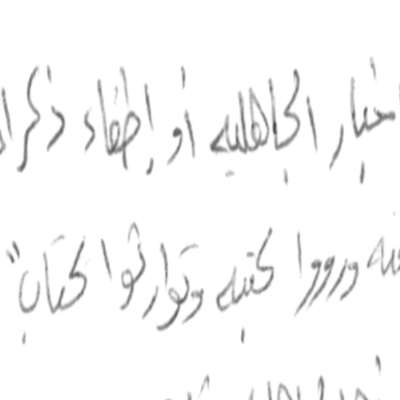 أخبار الجاهليه أو إطفاء ذكرا
ورووا كتبه وتوارثوا كتاب "